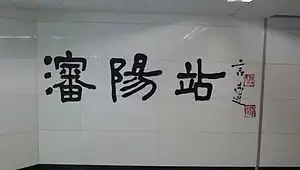 瀋陽站